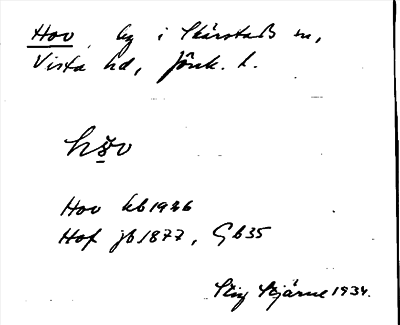 Hov by i Skärstads sn,
Vista hd, Jönk. l.
hov
Hov kb1936
Hof jb1877, Gb35
Stig Stjärne 1934.